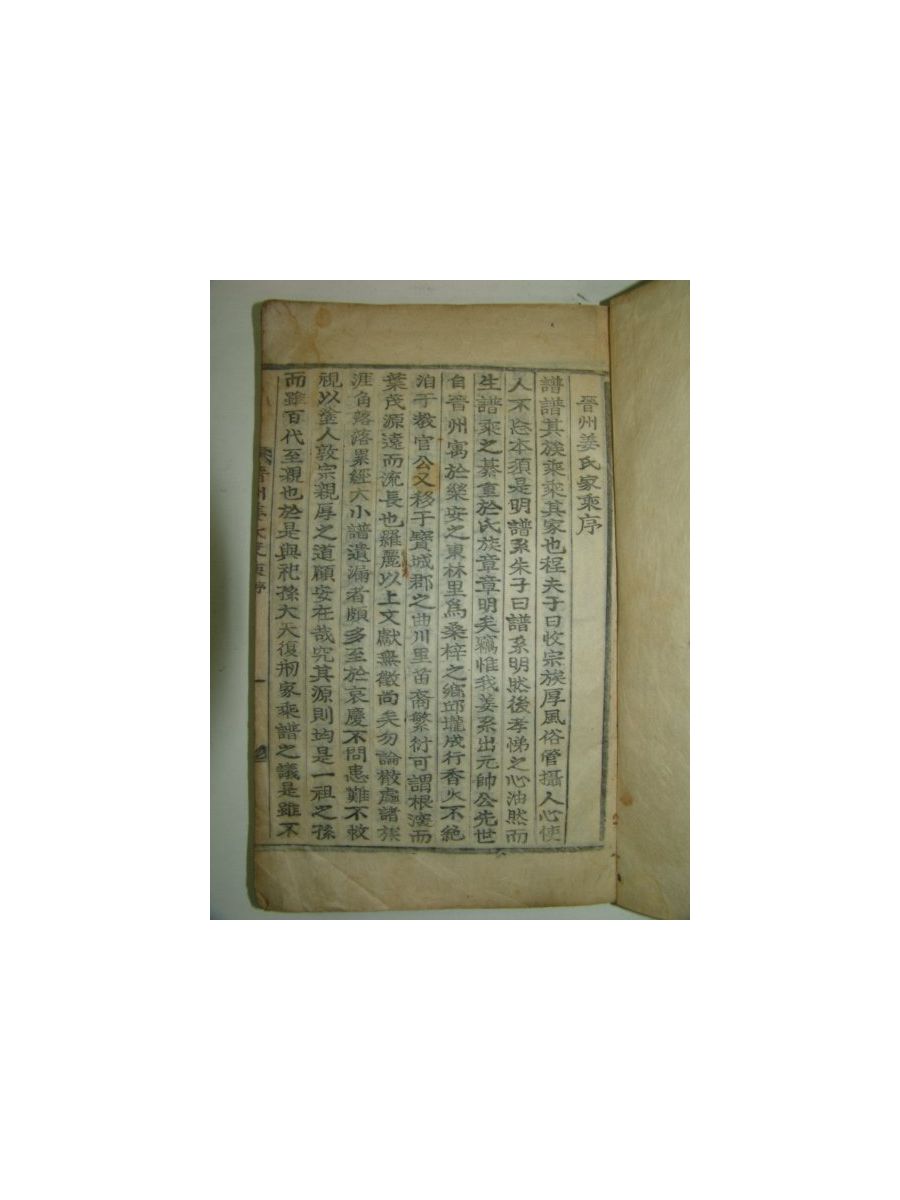 晉州姜氏家乘序
譜譜其族乘乘其家也程夫子曰收宗族厚風俗管攝人心使
人不忘本須是明譜系朱子曰譜系明然後孝悌之心油然而
生譜乘之綦重於氏族章章明矣竊惟我姜系出元帥公先世
自晉州寓於樂安之東林里爲桑梓之鄕邱壠成行香火不絶
洎于敎官公又移于寶城郡之曲川里苗裔繁衍可謂根深而
葉茂源遠而流長也羅麗以上文獻無徵尙矣勿論散處諸族
涯角落落累經大小譜遺漏者頗多至於哀慶不問患難不救
視以塗人敦宗親厚之道顧安在哉究其源則均是一祖之孫
而雖百代至親也於是與祀孫大天復刱家乘譜之議是雖不